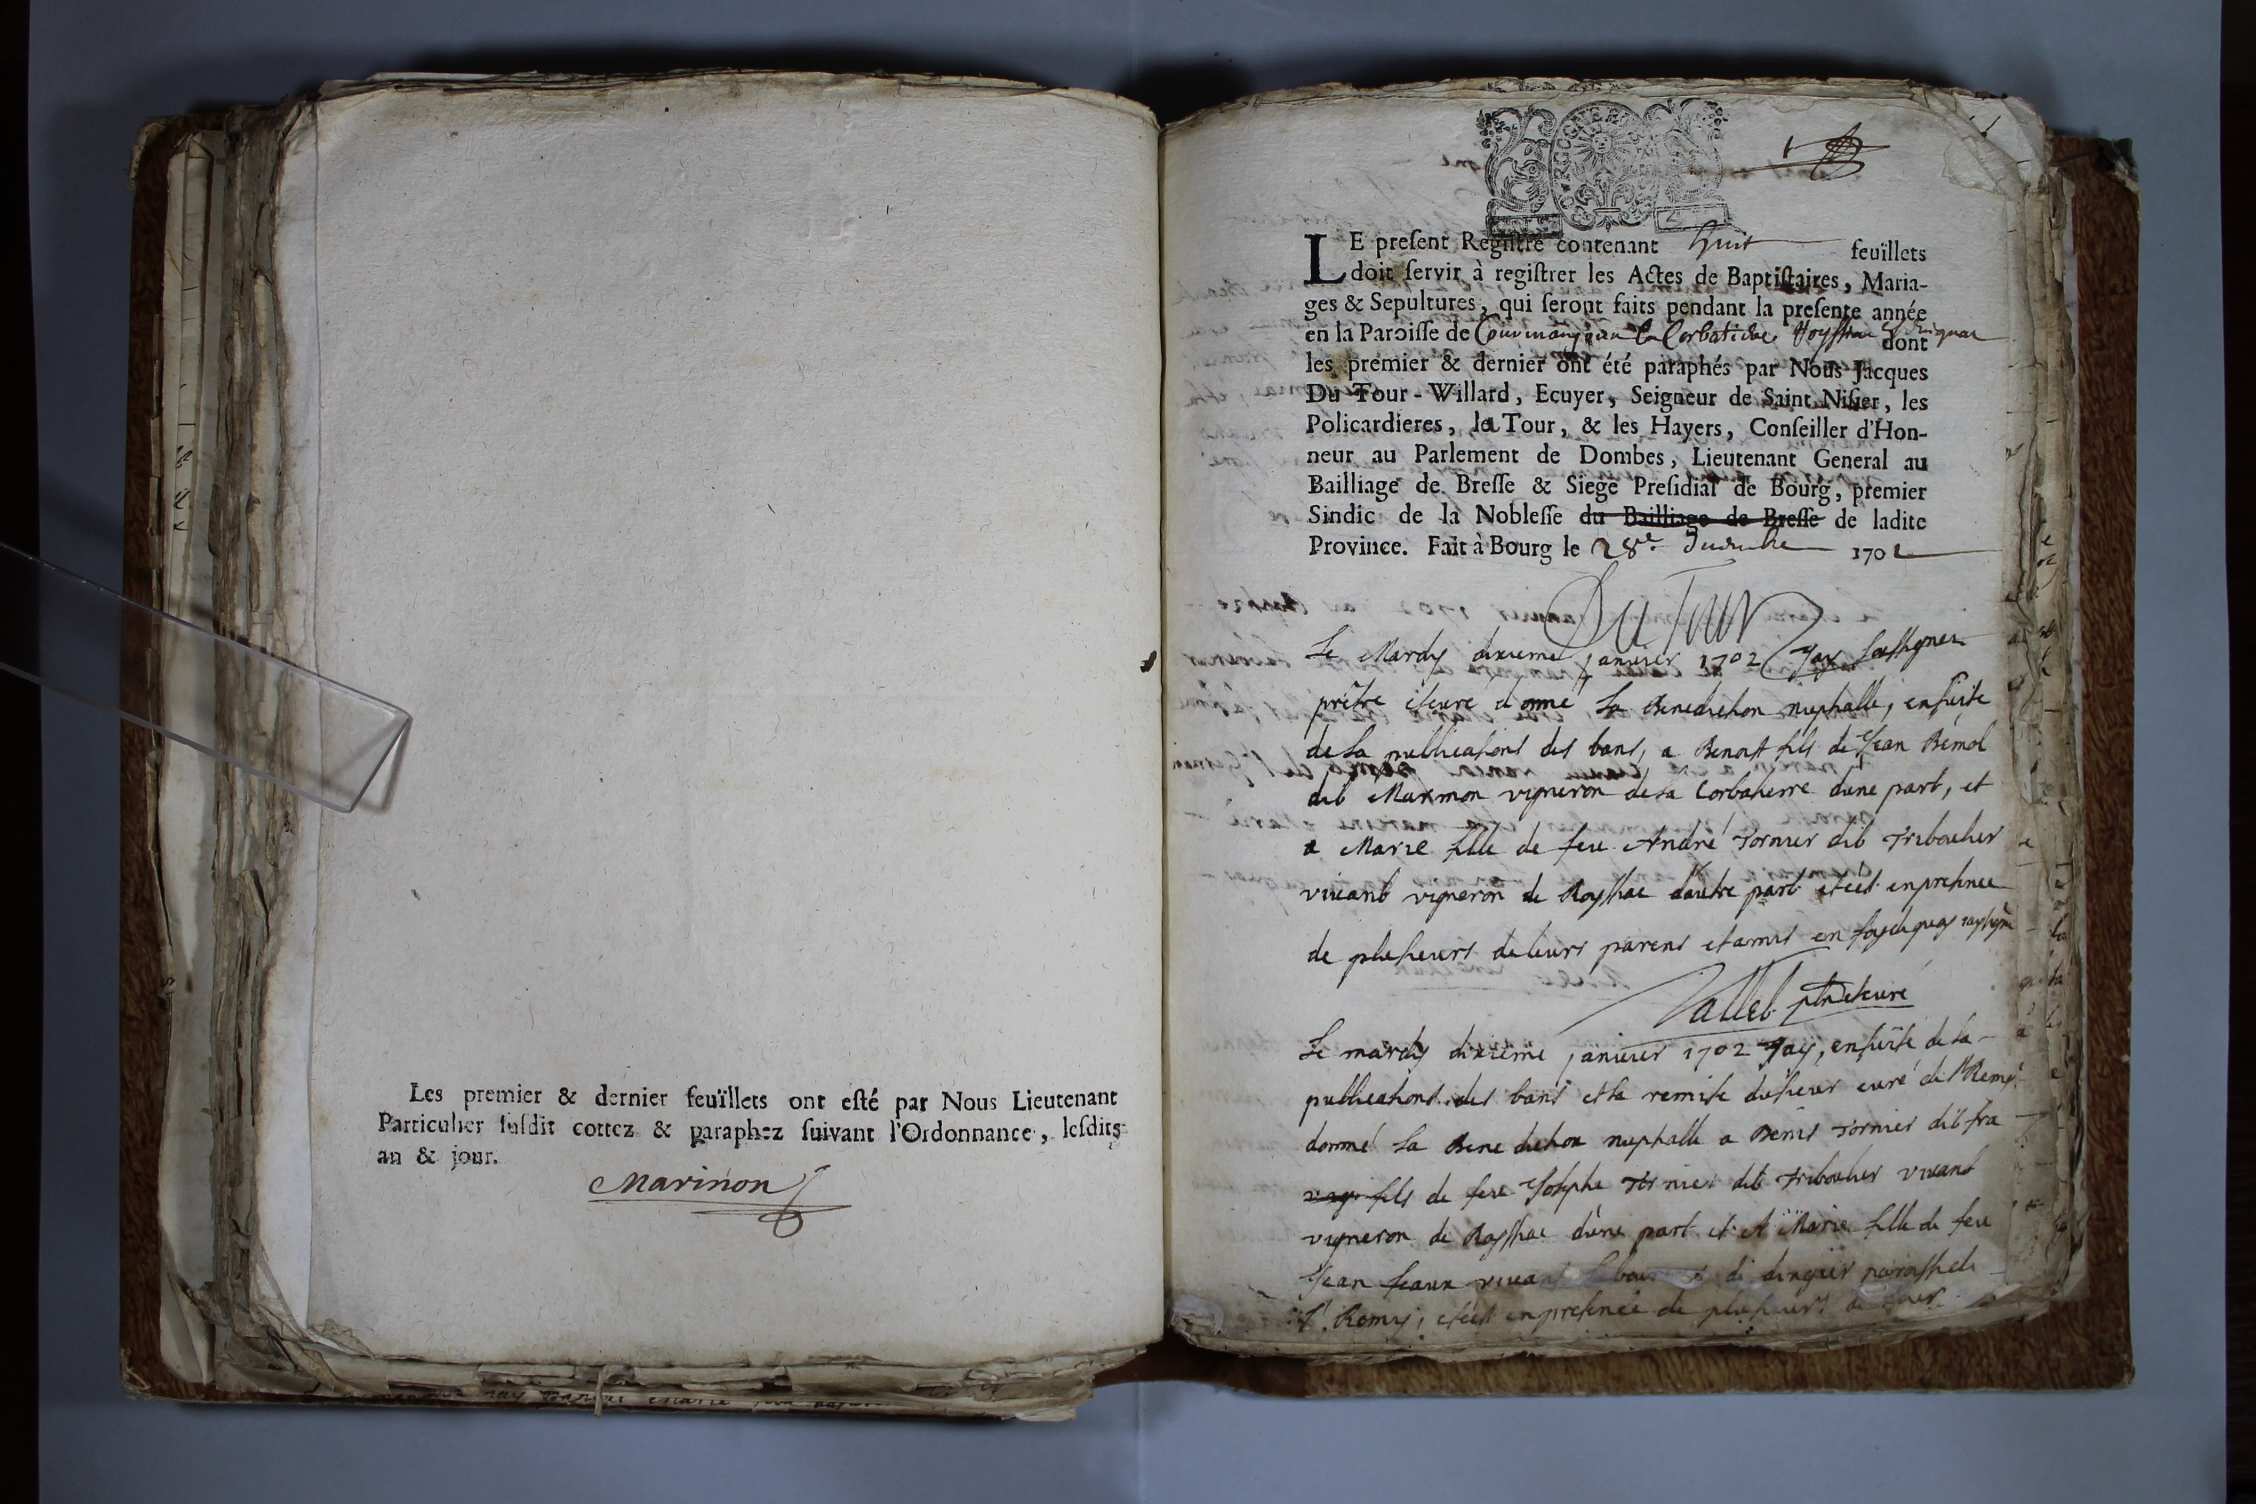 Les premier & dernier feuïllets ont esté par Nous Lieutenant
Particulier susdit cottez & paraphez suivant l'Ordonnance, lesdits
an & jour.
Marinon
LE present Registre contenant huit feuïllets
doit servir à registrer les Actes de Baptistaires, Maria-
ges & Sepultures, qui seront faits pendant la presente année
en la Paroisse de Courmangoux La Corbatiere Roissiac dont
les premier & dernier ont été paraphés par Nous Jacques
Du Tour-Willard, Ecuyer, Seigneur de Saint Nisier, les
Policardieres, la Tour, & les Hayers, Conseiller d'Hon-
neur au Parlement de Dombes, Lieutenant General au
Bailliage de Bresse & Siege Presidial de Bourg, premier
Sindic de la Noblesse du Bailliage de Bresse de ladite
Province. Fait à Bourg le 28e 1702
Du Tour
Le Mardy dixieme janvier 1702 Jay soussigner
prêtre et curé donné la Benediction nuptialle, ensuite
de la publications des bans, a Benoist fils de Jean Bemol
dit Marmon vigneron de la Corbatierre d'une part, et
a Marie fille de feu André Tornier dit Tribouher
vivant vigneron de Royssiac d'autre part et c'est en presence
de plusieurs de leurs parens et amis en foy de quoy
Vallet ptre et curé
Le mardy dixieme janvier 1702 Jay, ensuite de la
publications des bans et la remise du sieur curé de St Remy
donné la Benediction nuptialle a Denis Tornier dit fra
vign fils de feu Josephe Tornier dit Tribouher vivant
vigneron de Royssiac d'une part et A Marie fille de feu
Jean vivant de dingier paroisse de
St Remy, et c'est en presence de plusieurs de leur